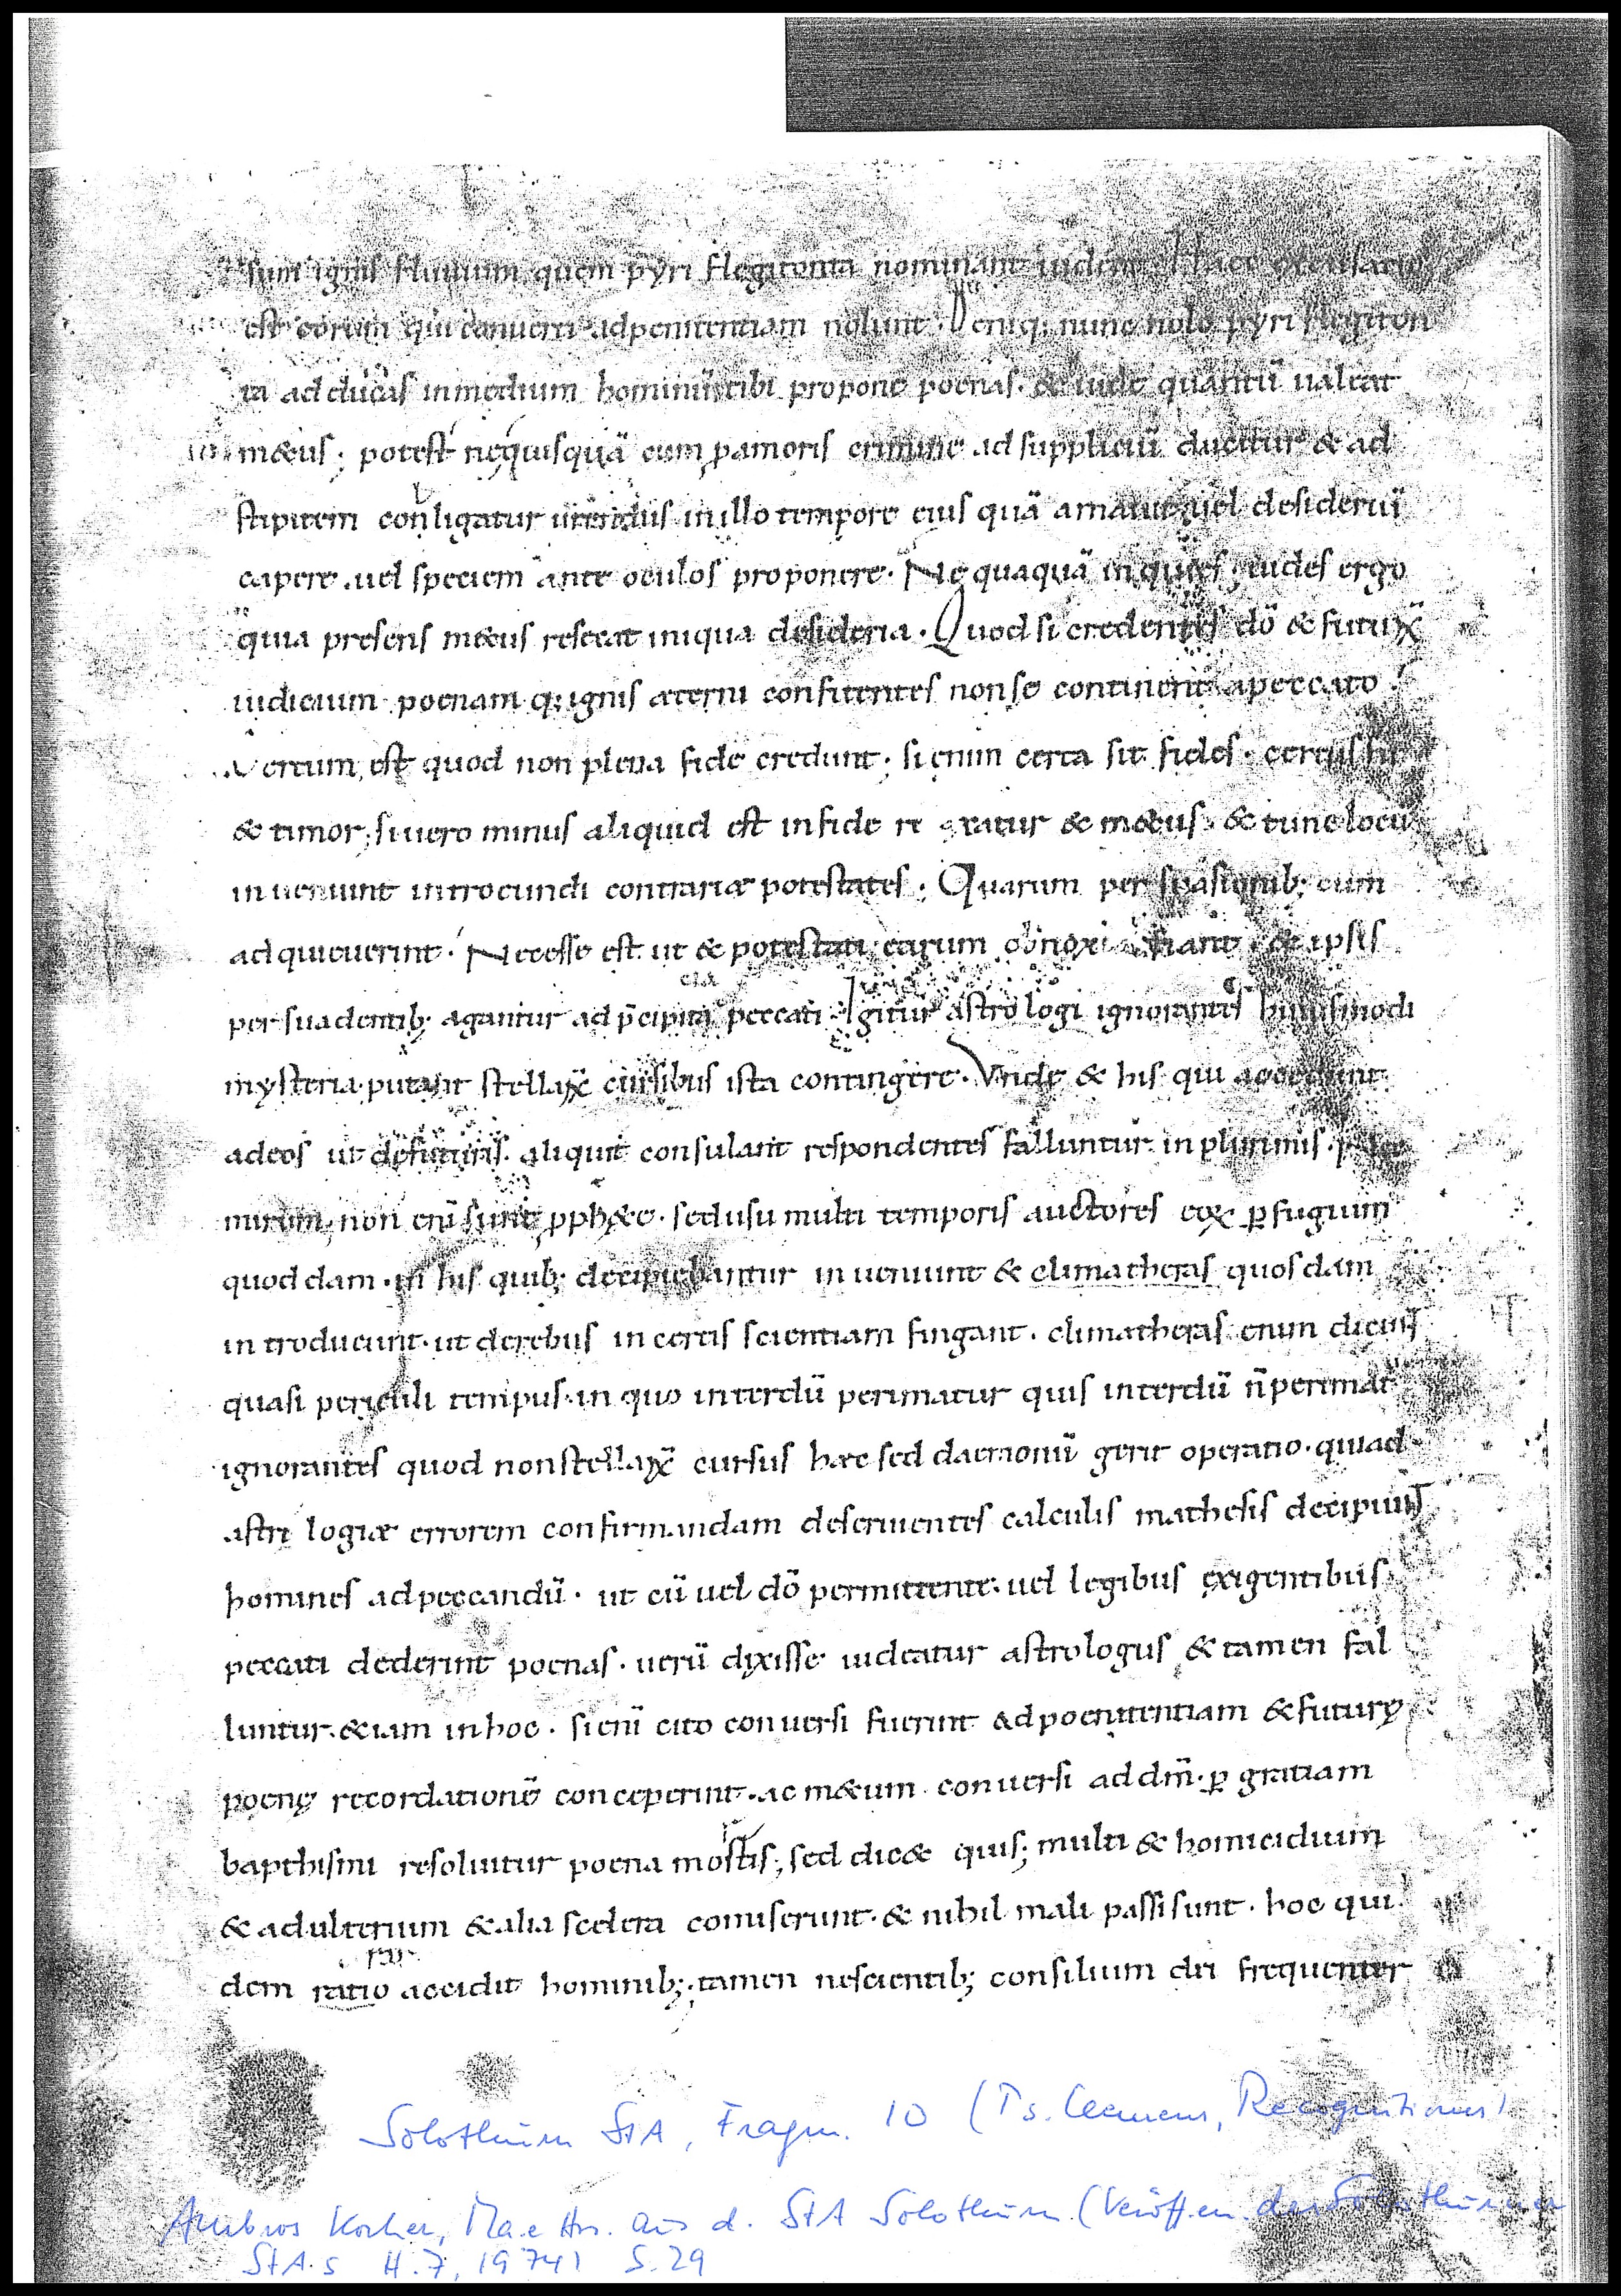 sum ignis fluuium quem pyri flegitonta nominant uident. Haec excusatio
est eorum qui conuerti ad penitentiam nolunt. Deniq; nunc nolo pyri flegiton
ta adducas in medium hominū tibi propone poenas. & uide quantū ualeat
m&us; potest nequisquā cum p amoris crimine ad suppliciū ducitur & ad
stipitem conligatur urendus in illo tempore eius quā amauit uel desideriū
capere. uel speciem ante oculos proponere. Nequaquā inquies; uides ergo
quia presens m&us resecat iniqua desideria. Quod si credentes dō & futuꝝ
iudicium poenam q; ignis aeterni confitentes non se continent a peccato
Certum est quod non plena fide credunt; si enim certa sit fides. certus fit
& timor; si uero minus aliquid est in fide re axatur & m&us. & tunc locū
inueniunt introeundi contrariæ potestates. Quarum persuasionib; cum
adquieuerint. Necesse est ut & potestati earum obnoxi fiant. & ipsis
persuadentib; agantur ad p̄cipitia peccati. Igitur astrologi ignorantes huiusmodi
mysteria. putant stellaꝝ cursibus ista contingere. Vnde & his qui accedunt
ad eos ut de futuris aliquit consulant respondentes falluntur in plurimis.
mirum, non enī sunt, pph&e. sed usu multi temporis auctores eoꝝ ꝑfugium
quoddam. in his quib; decipiebantur inueniunt & climatheras quosdam
introducunt. ut de rebus incertis scientiam fingant. climatheras enim dicunt
quasi periculi tempus. in quo interdū perimatur quis interdū n̄ perimat
ignorantes quod non stellaꝝ cursus haec sed daemonū gerit operatio. qui ad
astrilogiæ errorem confirmandam deseruientes calculis mathesis decipiunt
homines ad peccandū. ut cū uel dō permittente. uel legibus exigentibus
peccati dederint poenas. uerū dixisse uideatur astrologus & tamen fal
luntur. &iam in hoc. si enī cito conuersi fuerint ad poenitentiam & futurę
poenę recordationē conceperint. ac m&um conuersi ad dm̄. ꝑ gratiam
bapthismi resoluitur poena mostis; sed dic& quis; multi & homicidium
& adulterium & alia scelera comiserunt. & nihil mali passi sunt. hoc qui
dem ratio accidit hominib;. tamen nescientib; consilium dei frequenter
Solothurn StA, Fragm. 10 (Ps. Clemens, Recognitiones)
Ambros Kocher, Ma.e Hss. aus d. StA Solothurn. (Veröffen. des Solothurner
StA.s H. 7, 1974) S. 29